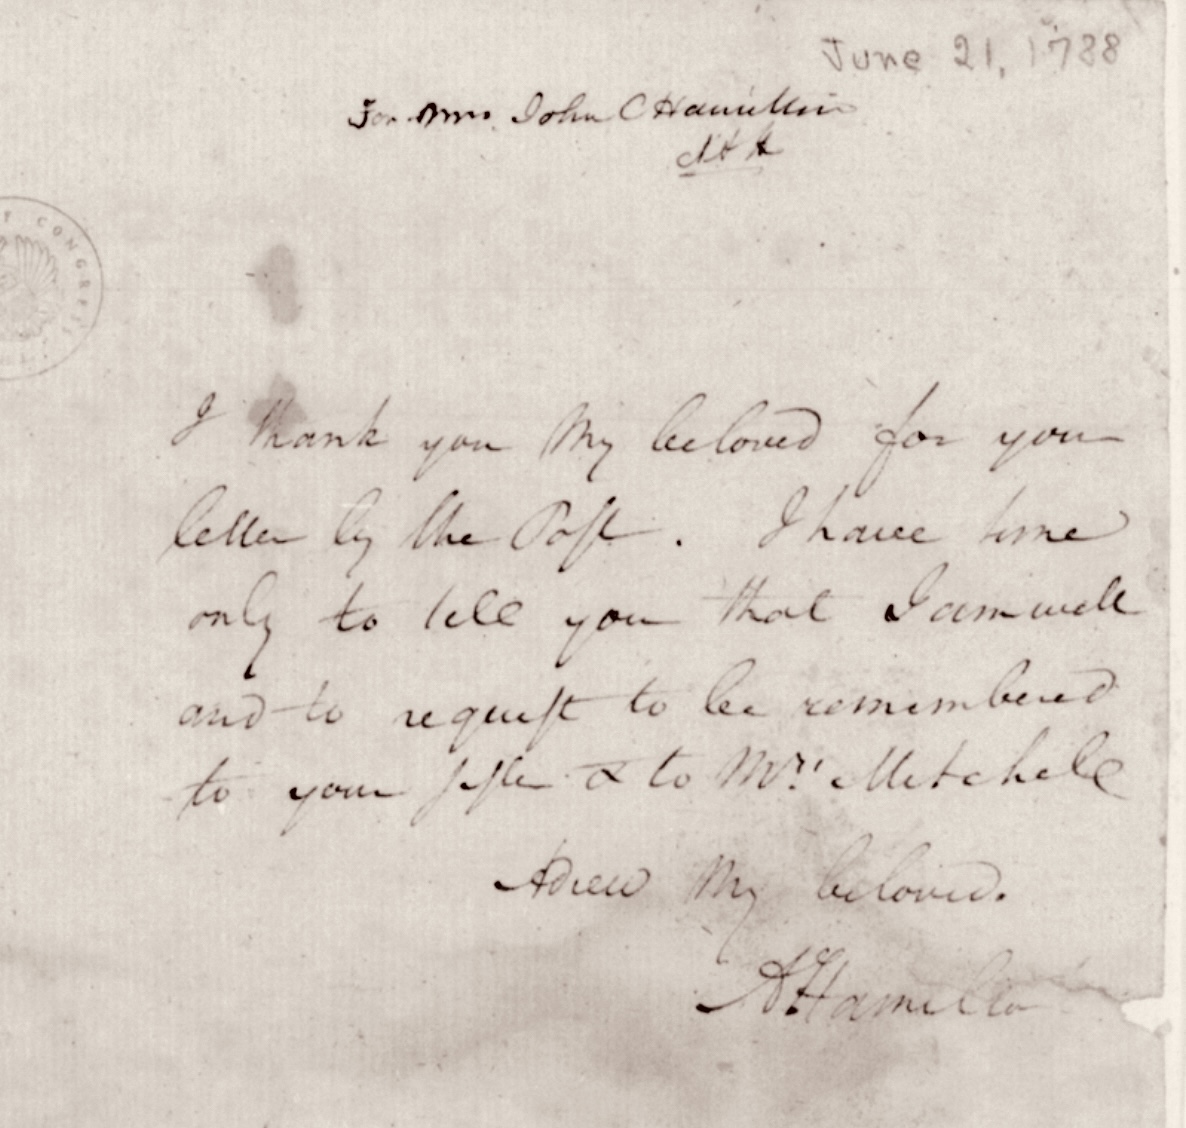 June 21, 1788
For Mrs. John C Hamilton
I thank you My beloved for your
letter by the Post. I have time
only to tell you that I am well
and to request to be remembered
to your sister & to Mrs. Mitchell
Adieu My beloved.
A Hamilton
CONGRESS